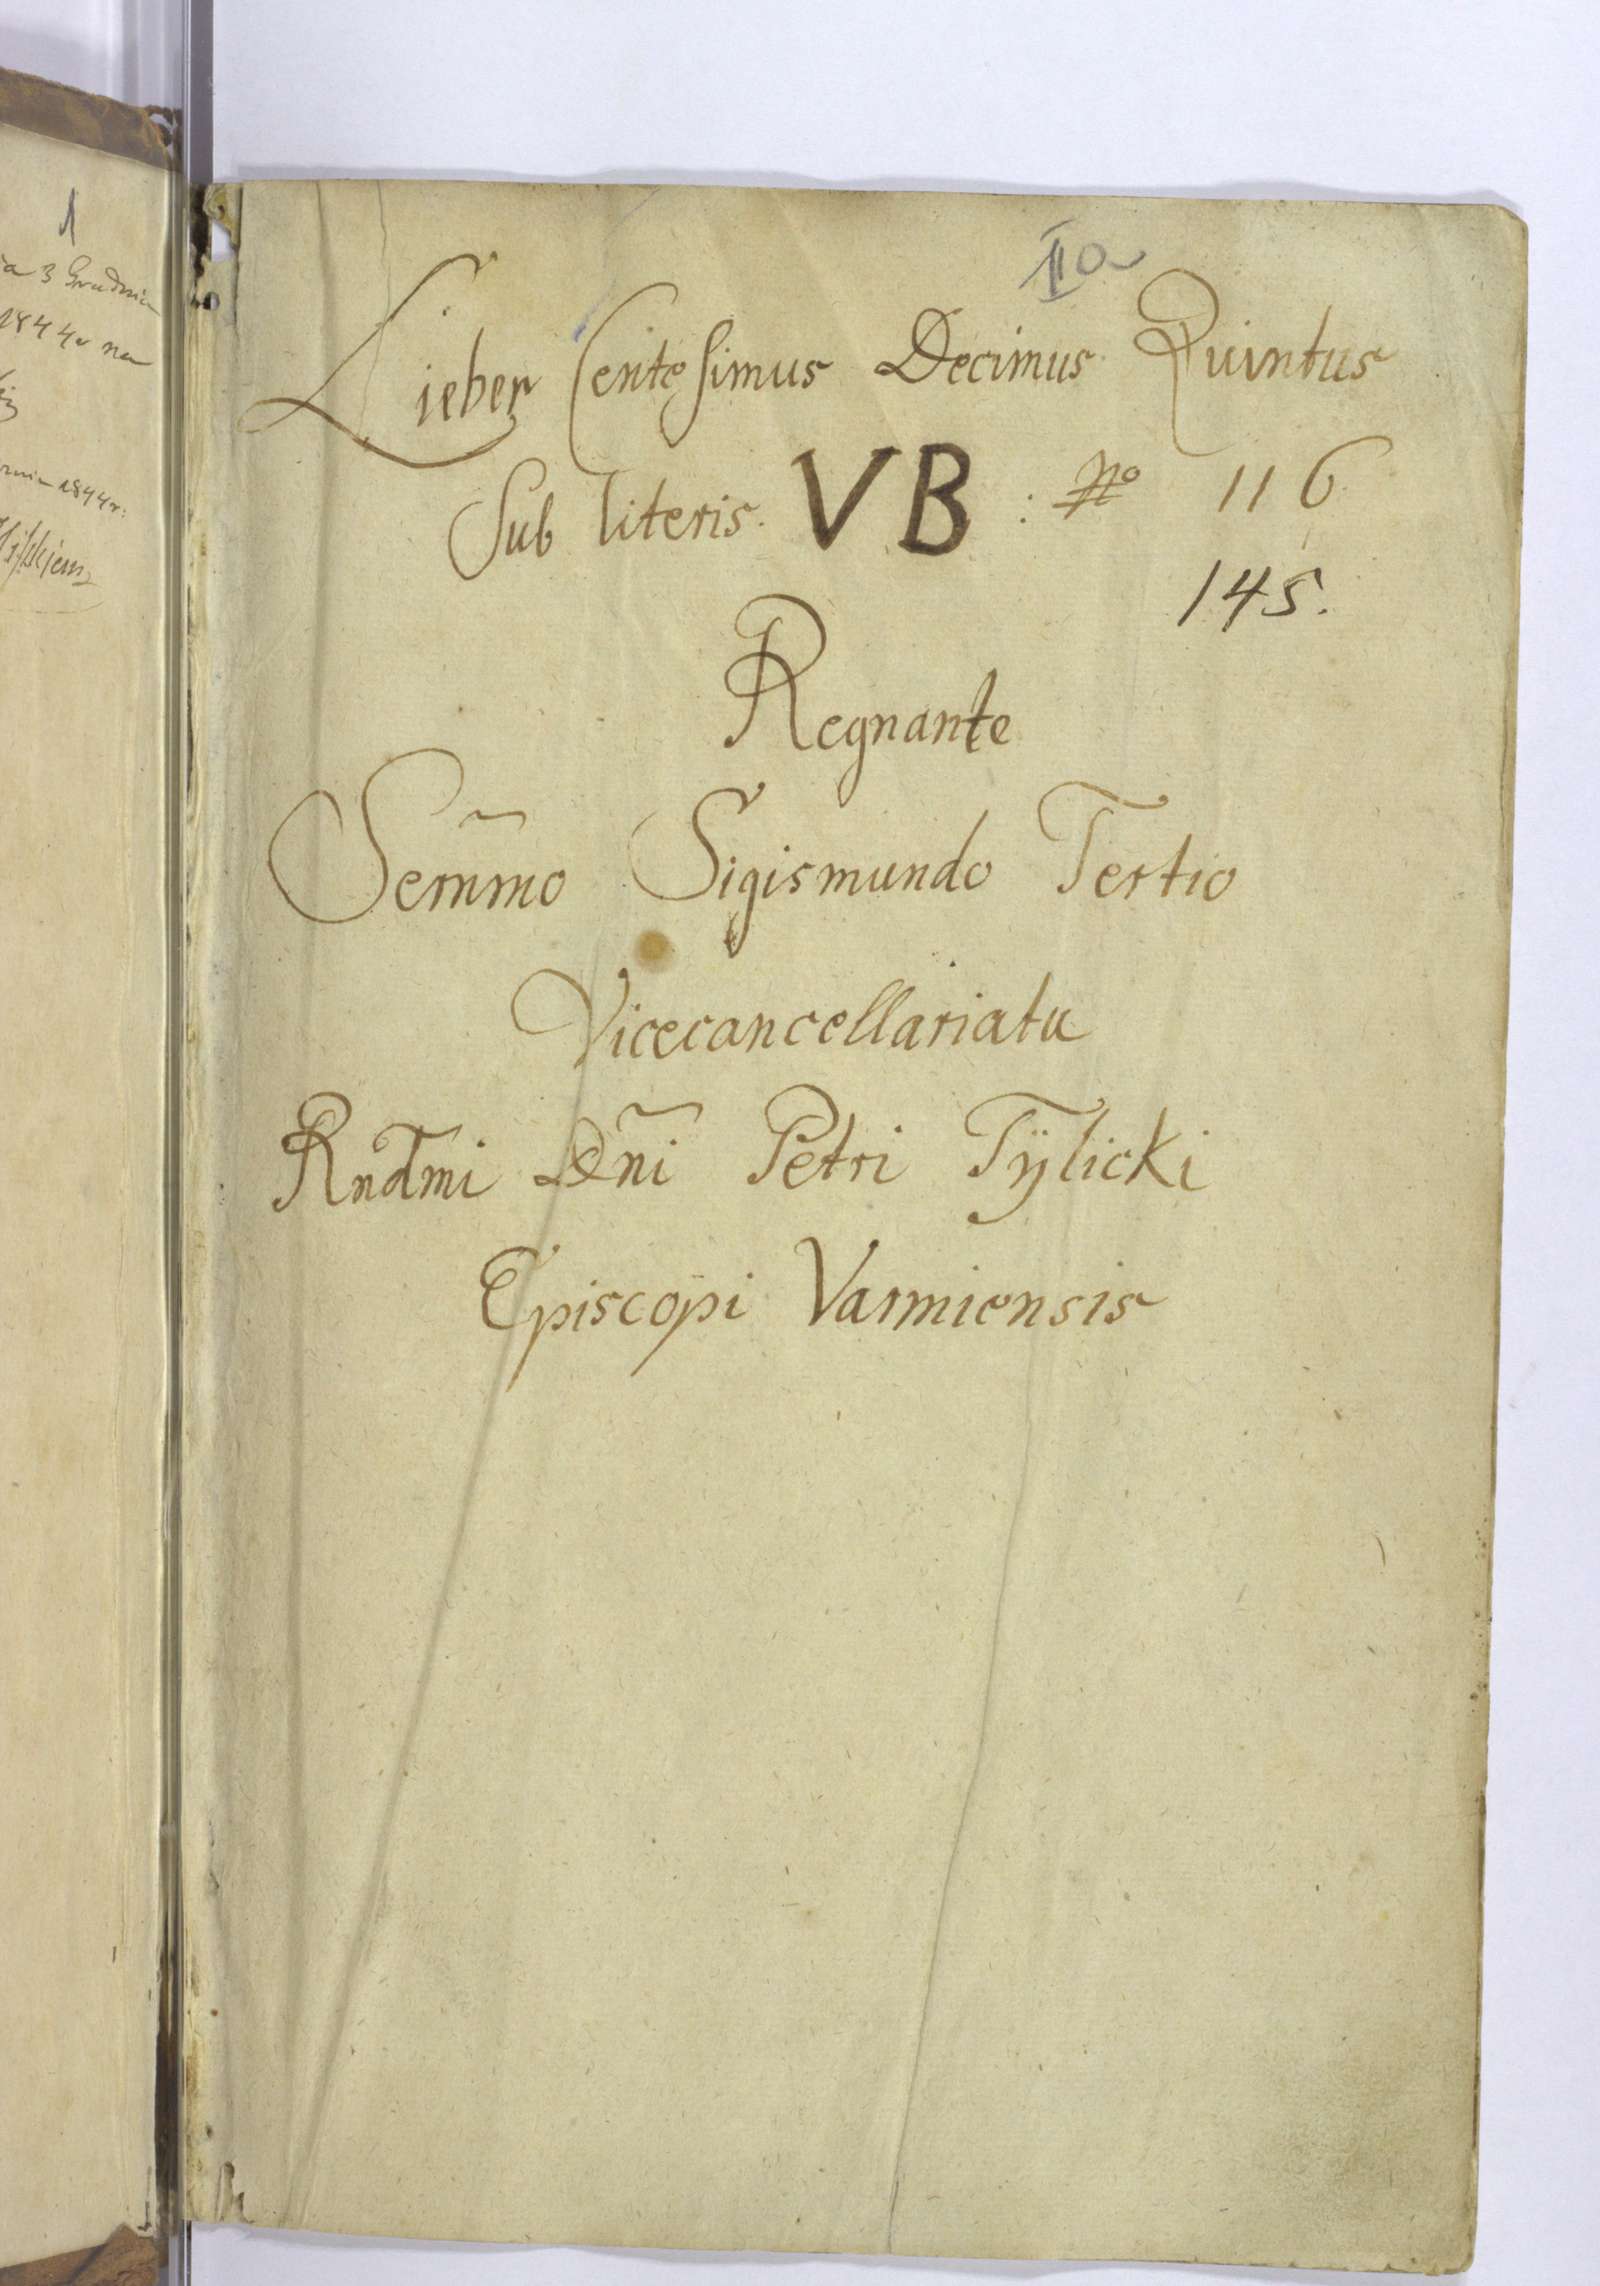 1
a 3 Grudnia
1844r na
1844r.
IIa
Lieber Centesimus Decimus Quintus
Sub literis. VB : No 116
145.
Regnante
Serñmo Sigismundo Tertio
Vicecancellariatu
Rndmi Dñi Petri Tÿlicki
Episcopi Varmiensis